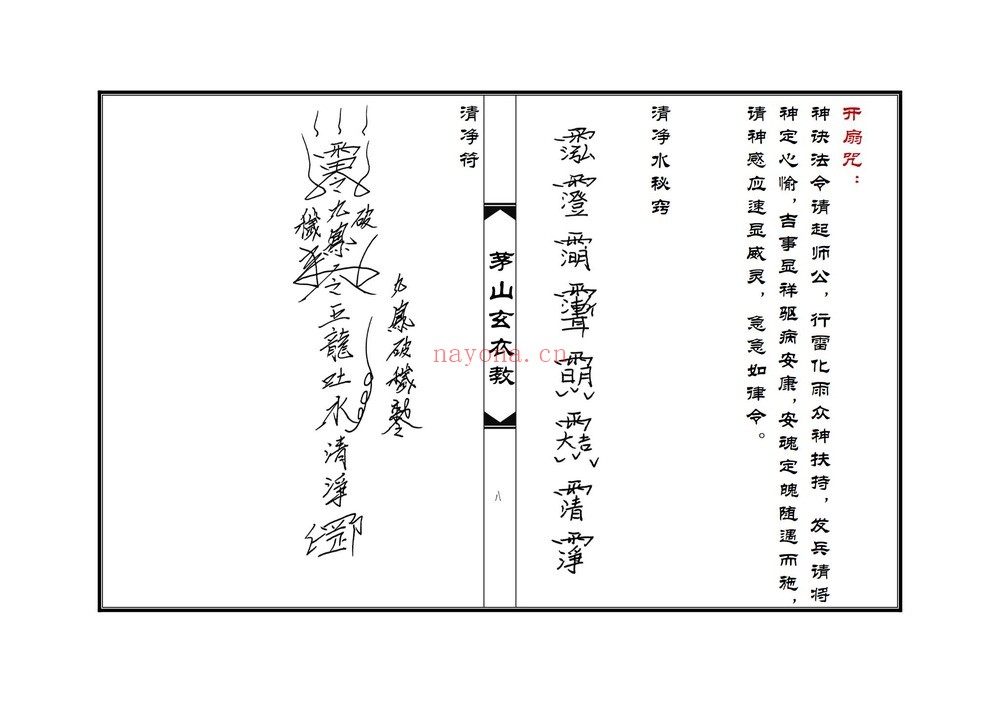 开扇咒：
神诀法令请起师公，行雷化雨众神扶持，发兵请将
神定心愉，吉事显祥驱病安康，安魂定魄随遇而施，
请神感应速显威灵，急急如律令。
清净水秘窍
茅山玄衣教
八
清净符
九鳳破穢
破
穢
九鳳
五龍吐水清淨
nayona.cn